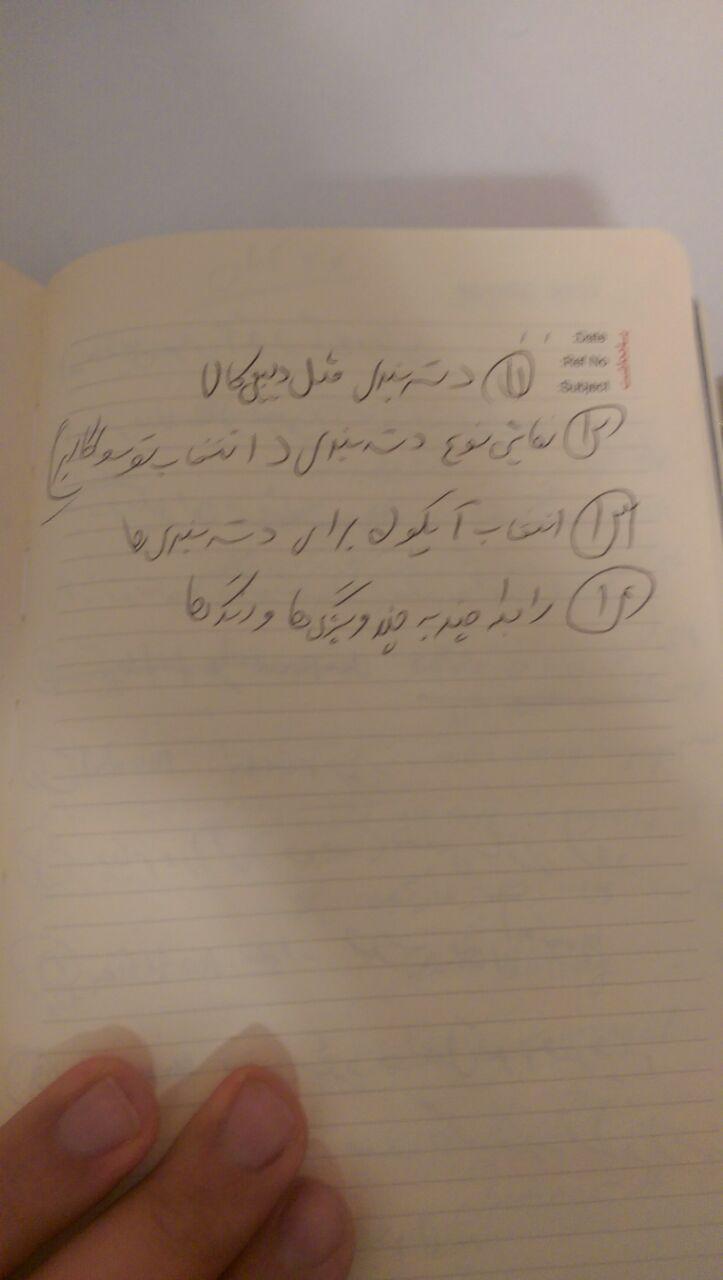 Date: / /
Ref No
Subject:
یادداشت
۱۱ دسته بندی مثل دیجی کالا
۱۲ نمایش نوع دسته بندی و انتخاب توسط کاربر
۱۳ انتخاب آیکون برای دسته بندی ها
۱۴ رابطه چند به چند ویژگی ها و رنگ ها